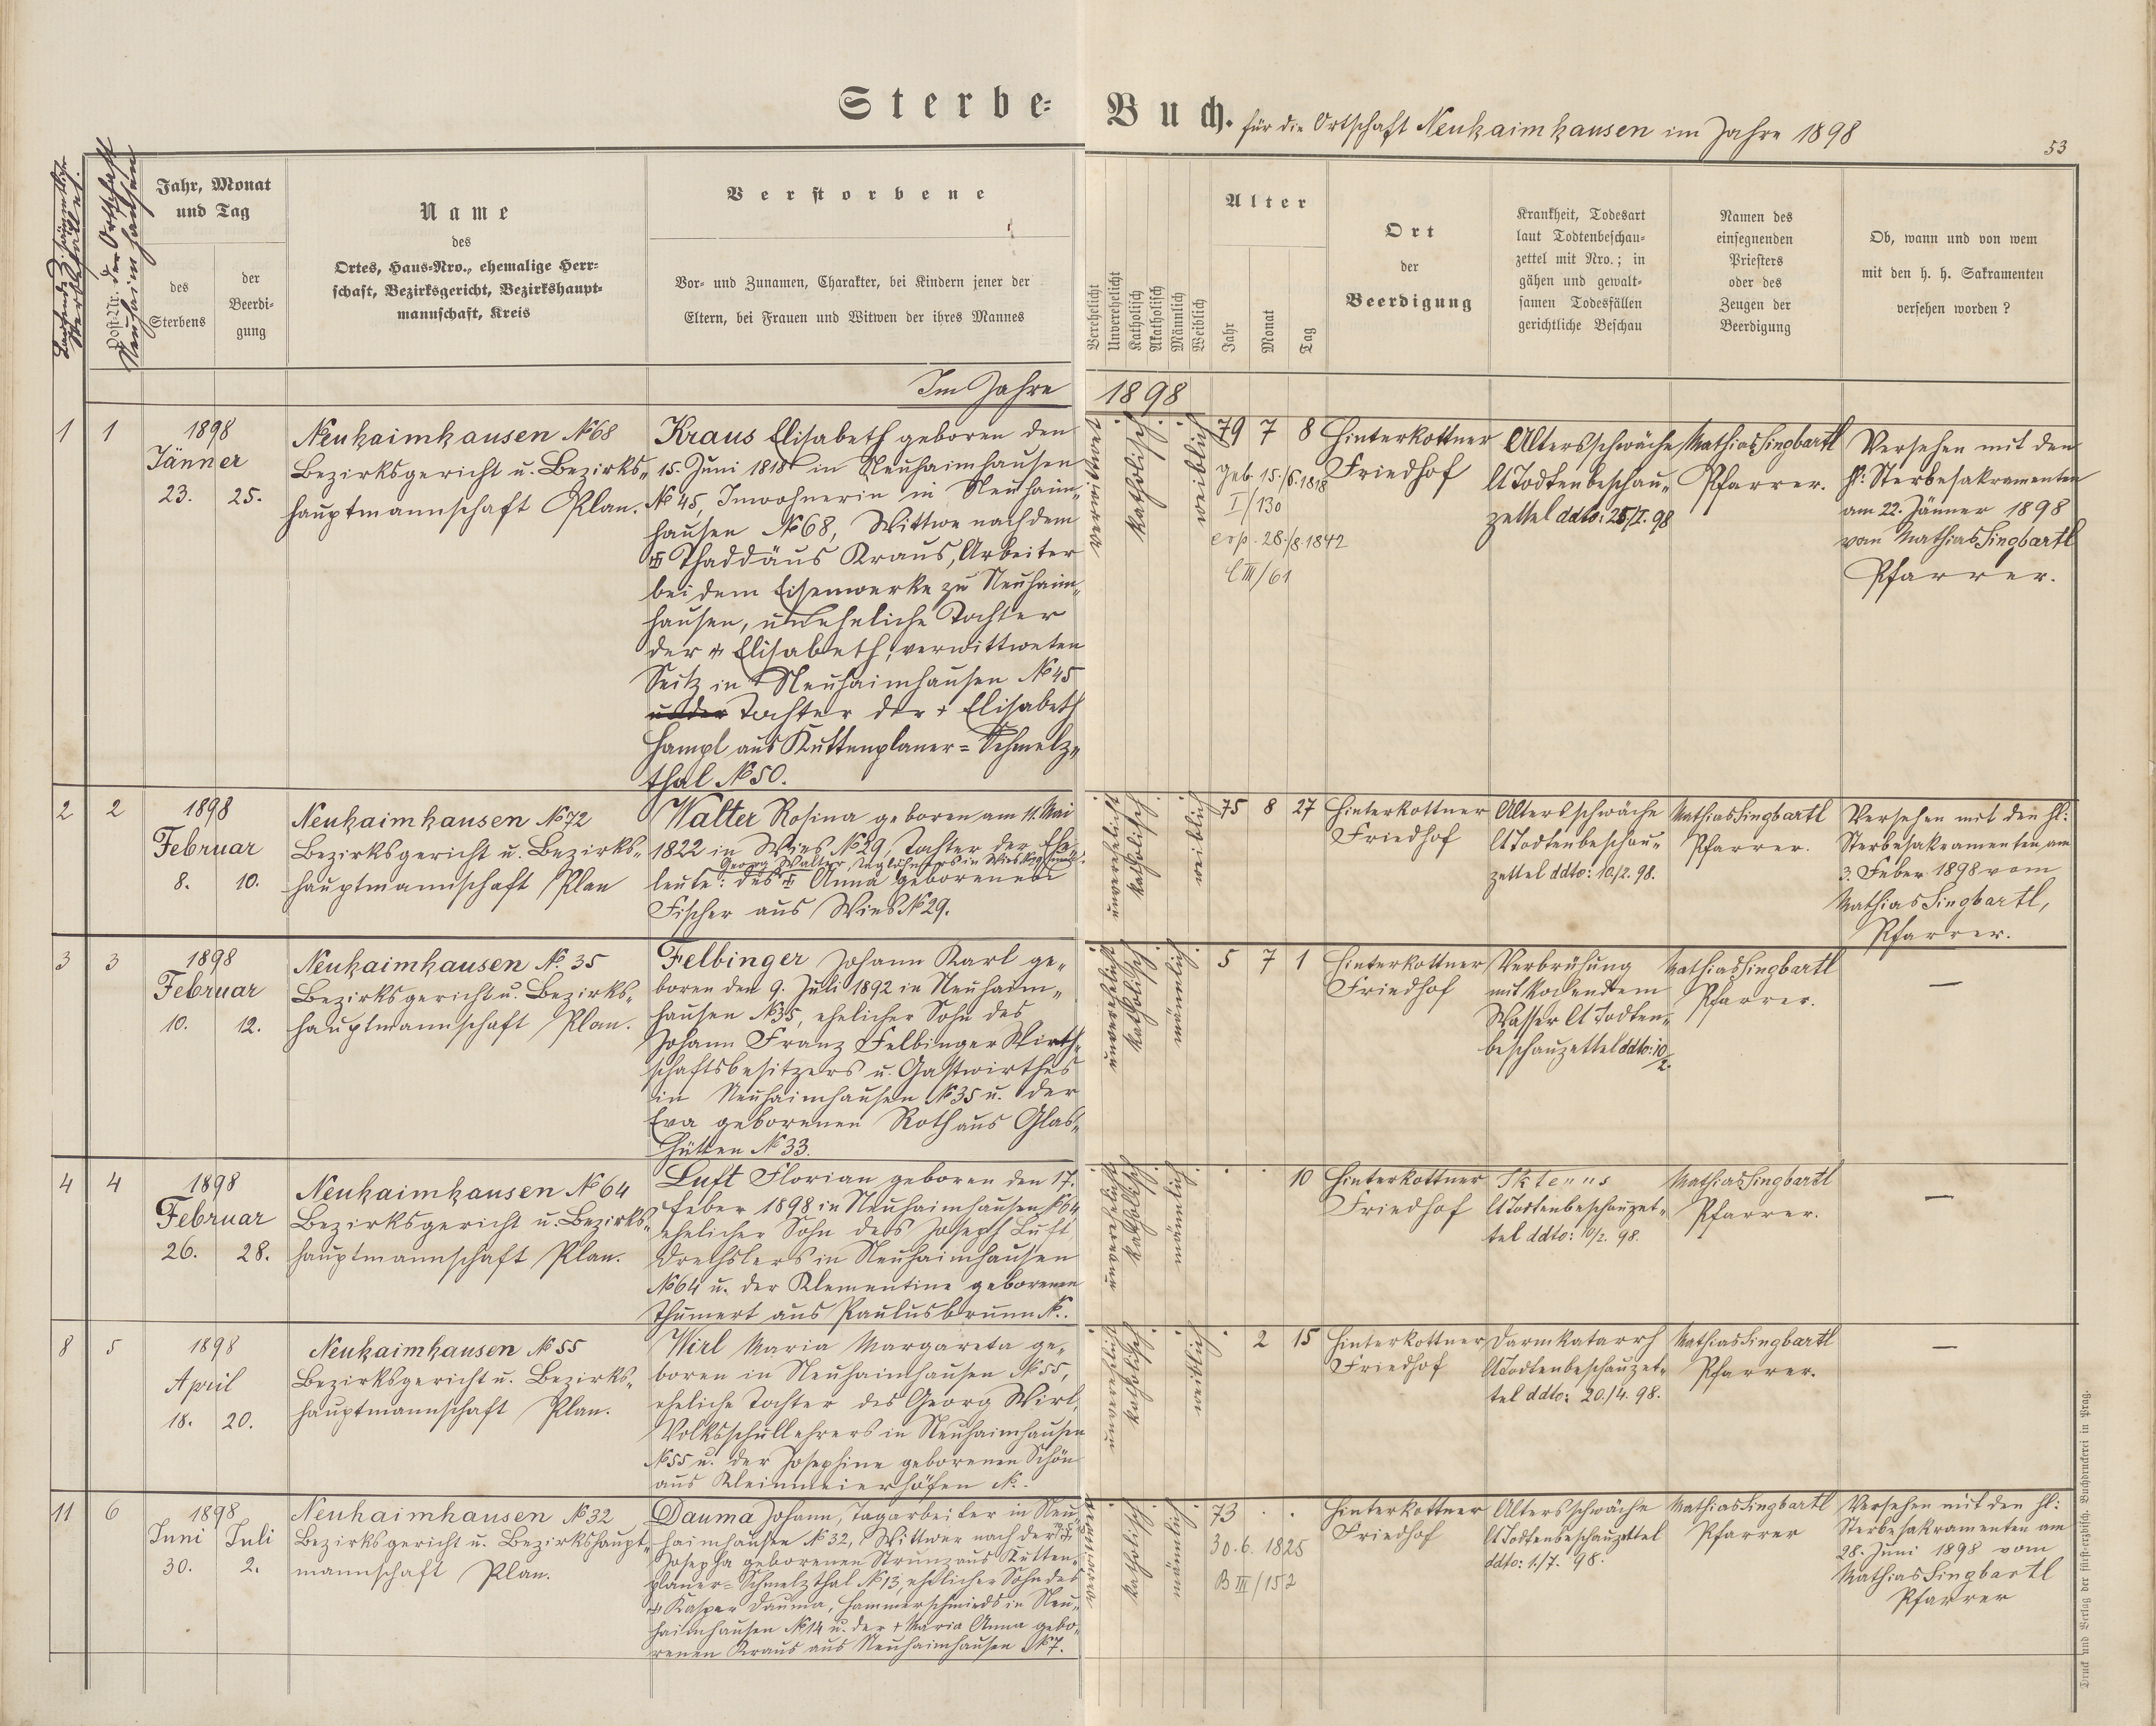 Sterbe-Buch. für die Ortschaft Neuhaimhausen im Jahre 1898
53
Laufende Z. sämmtlicher Sterbefälle.
Post-Nr. der Ortschaft Neuhaimhausen
Jahr, Monat
und Tag
des
Sterbens
der
Beerdi-
gung
Name
des
Ortes, Haus-Nro., ehemalige Herr-
schaft, Bezirksgericht, Bezirkshaupt-
mannschaft, Kreis
Verstorbene
Vor- und Zunamen, Charakter, bei Kindern jener der
Eltern, bei Frauen und Witwen der ihres Mannes
Verehelicht
Unverehelicht
Katholisch
Akatholisch
Männlich
Weiblich
Alter
Jahr
Monat
Tag
Ort
der
Beerdigung
Krankheit, Todesart
laut Todtenbeschau-
zettel mit Nro.; in
gähen und gewalt-
samen Todesfällen
gerichtliche Beschau
Namen des
einsegnenden
Priesters
oder des
Zeugen der
Beerdigung
Ob, wann und von wem
mit den h. h. Sakramenten
versehen worden?
Im Jahre 1898
1
1
1898
Jänner
23. 25.
Neuhaimhausen No 68
Bezirksgericht u. Bezirks-
hauptmannschaft Plan.
Kraus Elisabeth geboren den
15. Juni 1818 in Neuhaimhausen
No 45, Inwohnerin in Neuhaim-
hausen No 68, Wittwe nach dem
† Thaddäus Kraus, Arbeiter
bei dem Eisenwerke zu Neuhaim-
hausen, uneheliche Tochter
der † Elisabeth, verwittweten
Seitz in Neuhaimhausen No 45
Tochter der † Elisabeth
Hampl aus Kuttenplaner-Schmelz-
thal No 50.
verwitwet
katholisch
weiblich
79 7 8
geb. 15./6. 1818
I/130
cop. 28./8. 1842
C III/61
Hinterkottner
Friedhof
Altersschwäche
lt Todtenbeschau-
zettel ddto: 25/I. 98
Mathias Singbartl
Pfarrer.
Versehen mit den
hl: Sterbesakramenten
am 22. Jänner 1898
vom Mathias Singbartl
Pfarrer.
2
2
1898
Februar
8. 10.
Neuhaimhausen No 72
Bezirksgericht u. Bezirks-
hauptmannschaft Plan
Walter Rosina geboren am 11. Mai
1822 in Wies No 29, Tochter der Ehe-
Georg Walter, Taglöhners in Wies
leute: des † Anna geborenen
Fischer aus Wies No 29.
unverehelicht
katholisch
weiblich
75 8 27
Hinterkottner
Friedhof
Altersschwäche
lt Todtenbeschau-
zettel ddto: 10/2. 98.
Mathias Singbartl
Pfarrer.
Versehen mit den hl:
Sterbesakramenten am
3. Feber 1898 vom
Mathias Singbartl,
Pfarrer.
3
3
1898
Februar
10. 12.
Neuhaimhausen No. 35
Bezirksgericht u. Bezirks-
hauptmannschaft Plan.
Felbinger Johann Karl ge-
boren den 9. Juli 1892 in Neuhaim-
hausen No 35, ehelicher Sohn des
Johann Franz Felbinger Wirth-
schaftsbesitzers u. Gastwirthes
in Neuhaimhausen No 35 u. der
Eva geborenen Roth aus Glas-
hütten No 33.
unverehelicht
katholisch
männlich
5 7 1
Hinterkottner
Friedhof
Verbrühung
mit kochendem
Wasser lt Todten-
beschauzettel ddto: 10/2.
Mathias Singbartl
Pfarrer.
—
4
4
1898
Februar
26. 28.
Neuhaimhausen No 64
Bezirksgericht u. Bezirks-
hauptmannschaft Plan.
Luft Florian geboren den 17.
Feber 1898 in Neuhaimhausen No 64
ehelicher Sohn des Joseph Luft
Drechslers in Neuhaimhausen
No 64 u. der Klementine geborenen
Thumert aus Paulusbrunn No.
unverehelicht
katholisch
männlich
. . 10
Hinterkottner
Friedhof
Ikterus
lt Todtenbeschauzet-
tel ddto: 10/2. 98.
Mathias Singbartl
Pfarrer.
—
8
5
1898
April
18. 20.
Neuhaimhausen No 55
Bezirksgericht u. Bezirks-
hauptmannschaft Plan.
Wirl Maria Margareta ge-
boren in Neuhaimhausen No 55,
eheliche Tochter des Georg Wirl,
Volksschullehrers in Neuhaimhausen
No 55 u. der Josephine geborenen Schön
aus Kleinmeierhöfen No.
unverehelicht
katholisch
weiblich
. 2 15
Hinterkottner
Friedhof
Darmkatarrh
lt Todtenbeschauzet-
tel ddto: 20./4. 98.
Mathias Singbartl
Pfarrer.
—
11
6
1898
Juni Juli
30. 2.
Neuhaimhausen No 32
Bezirksgericht u. Bezirkshaupt-
mannschaft Plan.
Dauma Johann, Tagarbeiter in Neu-
haimhausen No 32, Wittwer nach der †
Josepha geborenen Strunz aus Kutten-
planer-Schmelzthal No 13, ehelicher Sohn des
† Kaspar Dauma, Hammerschmieds in Neu-
haimhausen No 14 u. der † Maria Anna gebo-
renen Kraus aus Neuhaimhausen No 7.
verwitwet
katholisch
männlich
73 . .
30. 6. 1825
B III/152
Hinterkottner
Friedhof
Altersschwäche
lt Todtenbeschauzettel
ddto: 1./7. 98.
Mathias Singbartl
Pfarrer
Versehen mit den hl:
Sterbesakramenten am
28. Juni 1898 vom
Mathias Singbartl
Pfarrer
Druck und Verlag der fürst-erzbisch. Buchdruckerei in Prag.